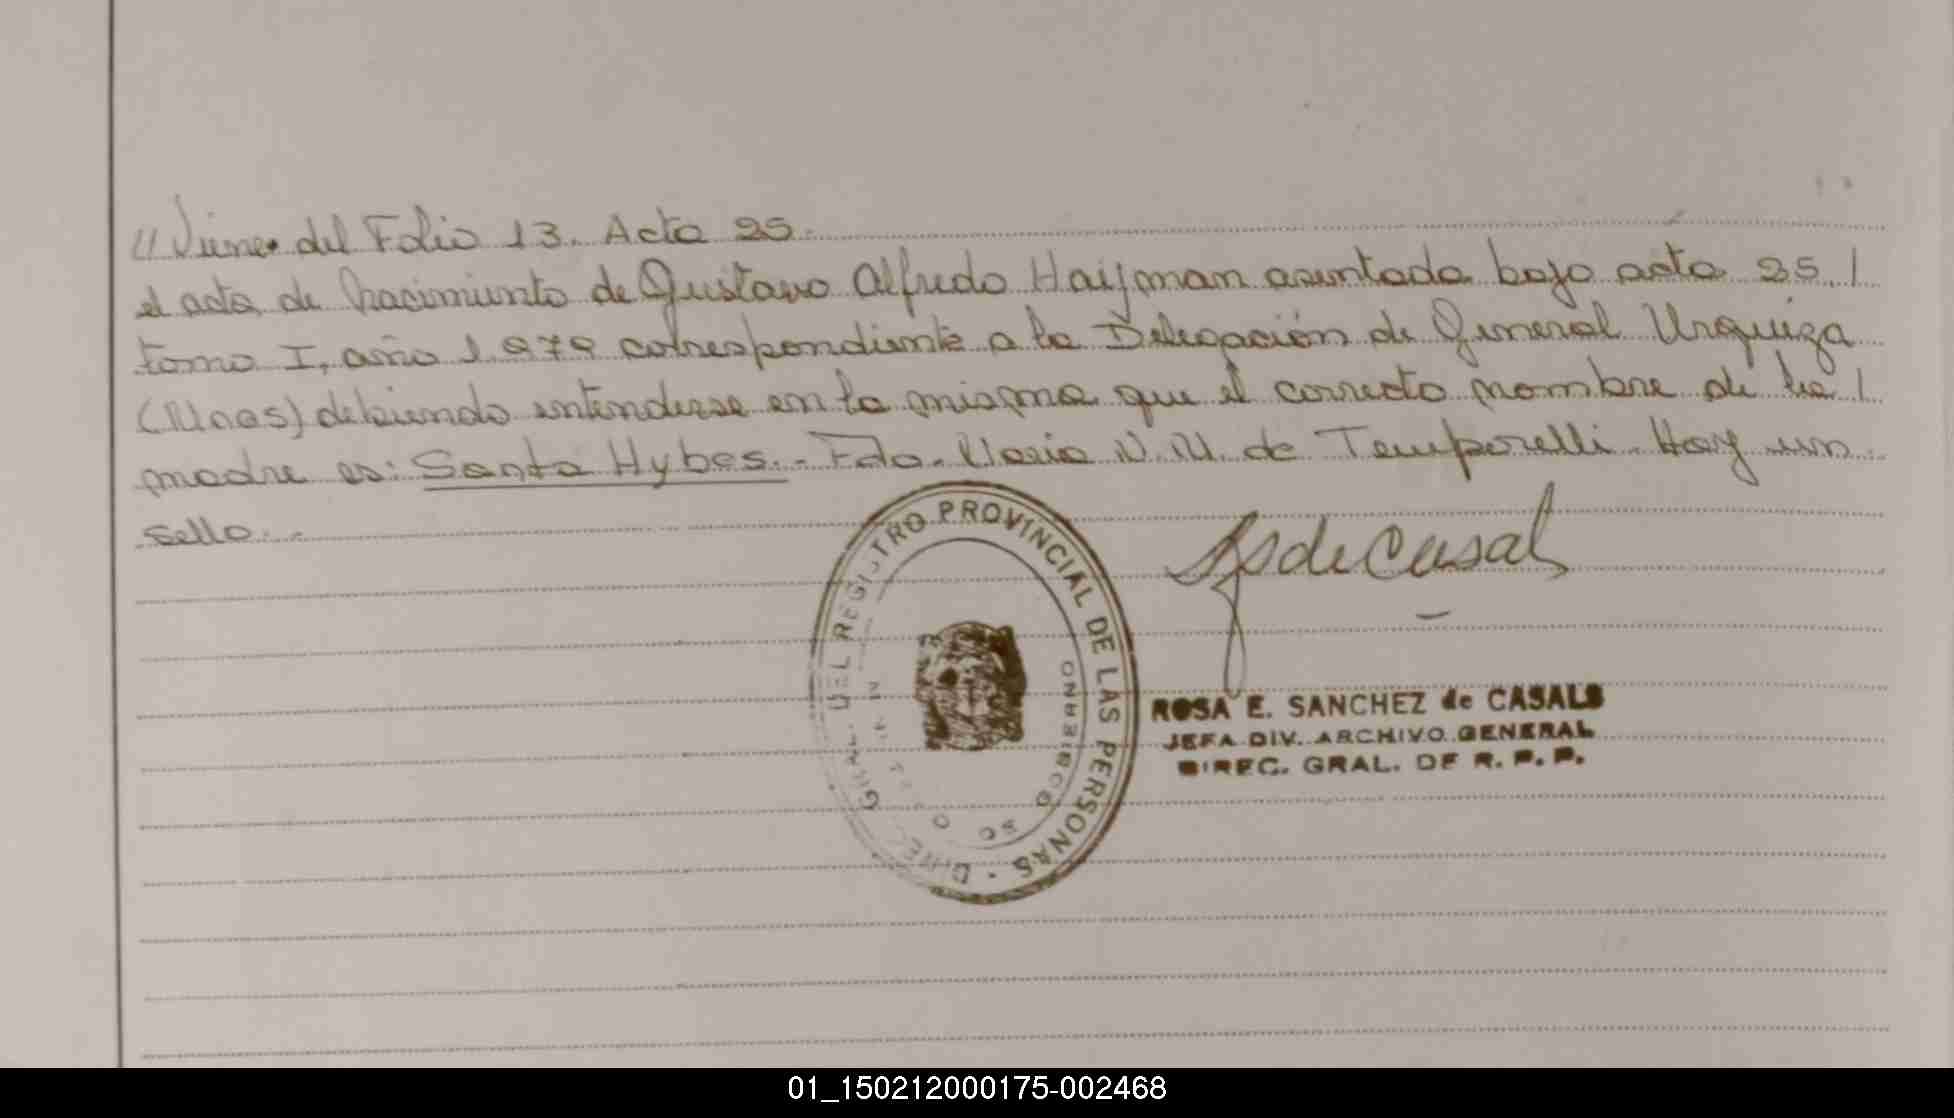 // Viene del Folio 13. Acta 25.
el acta de Nacimiento de Gustavo Alfredo Haijman asentada bajo acta 25, /
tomo I, año 1979 correspondiente a la Delegación de General Urquiza
debiendo entenderse en la misma que el correcto nombre de la /
madre es: Santa Hybes.- Fdo. María N. M. de Temporelli. Hay un
sello.-
DIREC. GRAL. DEL REGISTRO PROVINCIAL DE LAS PERSONAS -
ROSA E. SANCHEZ de CASALS
JEFA DIV. ARCHIVO GENERAL
DIREC. GRAL. DE R. P. P.
01_150212000175-002468